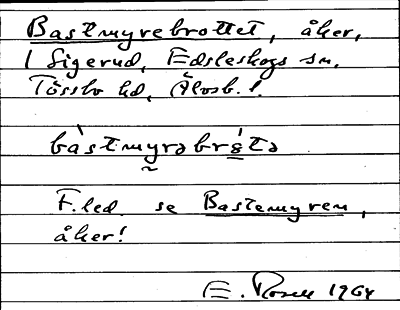 Bastmyrebrottet, åker,
1 Sigerud, Edsleskogs sn.
Tössbo hd, Älvsb. l.
bàstmyrəbrótə
F.led se Bastemyren,
åker!
E. Rosell 1964